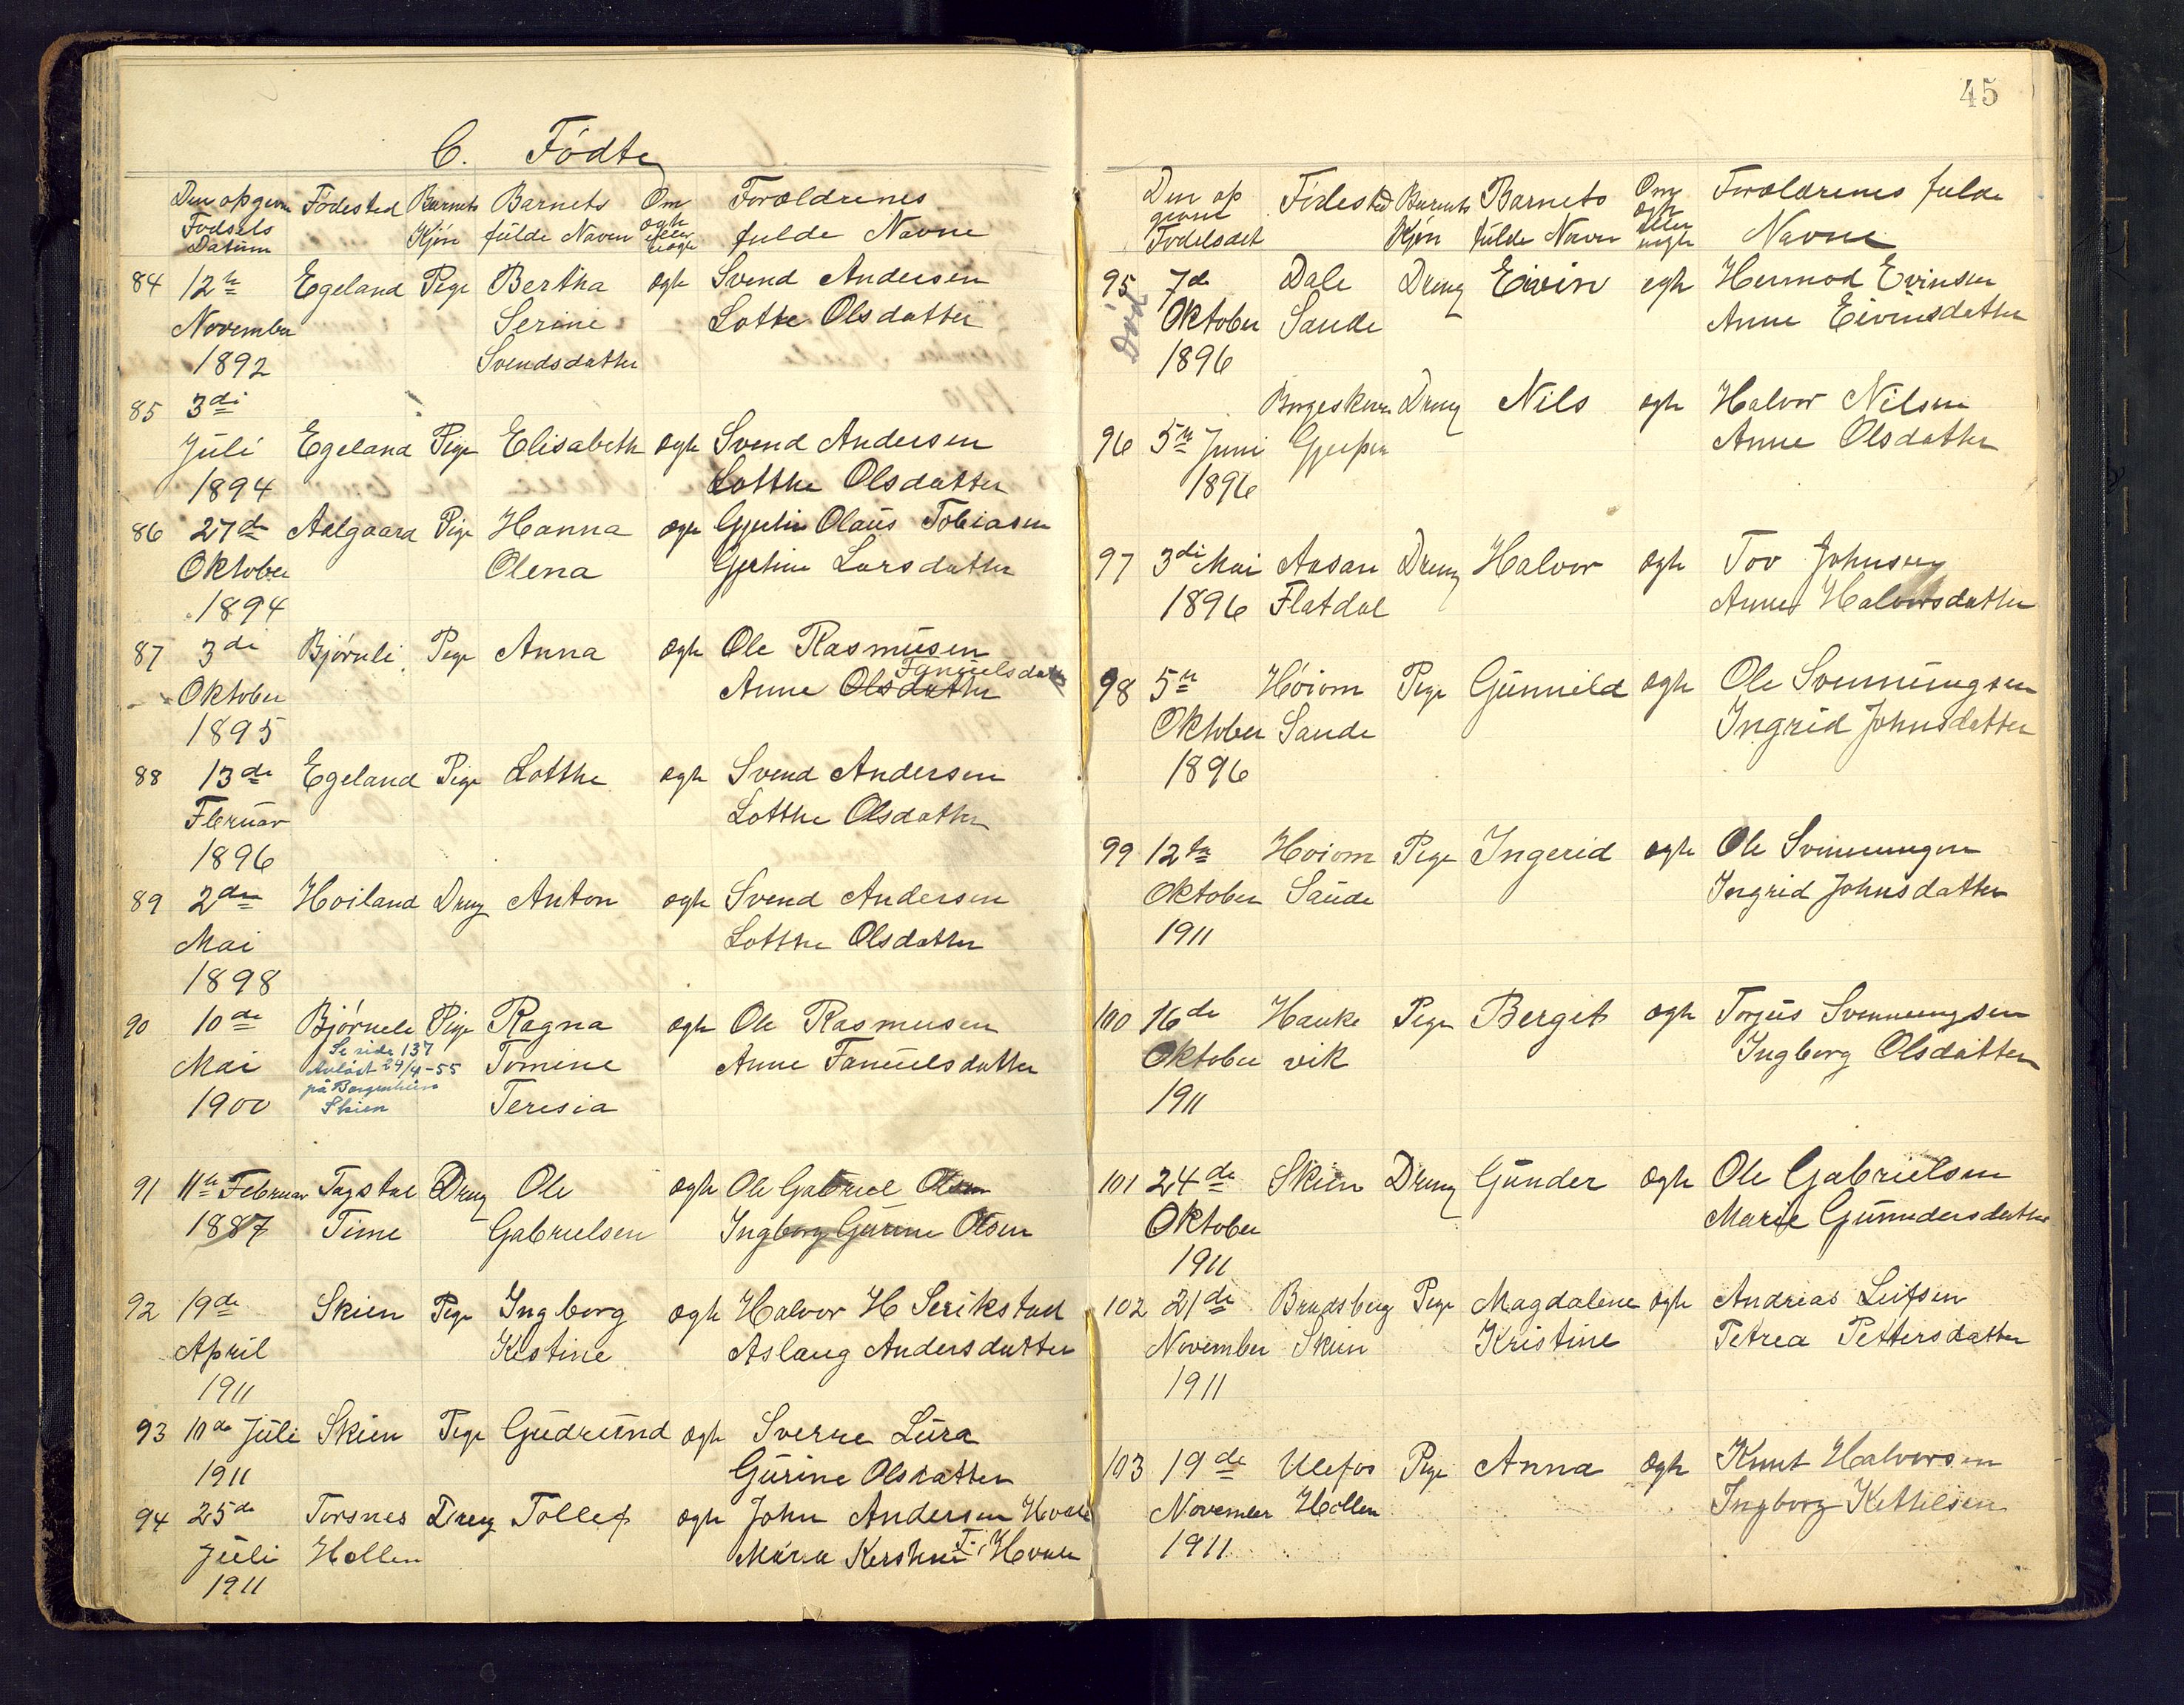 C. Fødte
Den opgivne Fødested Barnets Barnets Om Forældrenes
Fødsels Kjøn fulde Navn ægte eller uægte fulde Navne
Datum
84 12te Egeland Pige Bertha ægte Svend Andersen
November Serine Lothe Olsdatter
1892 Svendsdatter
85 3di
Juli Egeland Pige Elisabeth ægte Svend Andersen
1894 Lotthe Olsdatter
86 27de Aalgaard Pige Hanna ægte Gjertin Olaus Tobiasen
Oktober Olena Gjertine Larsdatter
1894
87 3di Bjørnli Pige Anna ægte Ole Rasmusen
Fanuelsdatter
Oktober Anne Olsdatter
1895
88 13de Egeland Pige Lotthe ægte Svend Andersen
Februar Lotthe Olsdatter
1896
89 2den Hoiland Dreng Anton ægte Svend Andersen
Mai Lotthe Olsdatter
1898
90 10de Bjørnele Pige Ragna ægte Ole Rasmusen
Se side 137
Mai Avløst 24/4-55 Tomine Anne Fanuelsdatter
på Borgeåsen
1900 Skien Teresia
91 11te Februar Tagstal Dreng Ole ægte Ole Gabriel Olsen
1887 Time Gabrielsen Ingborg Gurine Olsen
92 19de Skien Pige Ingborg ægte Halvor H Serikstad
April Kistine Aslaug Andersdatter
1911
93 10de Juli Skien Pige Gudrund ægte Sverre Lura
1911 Gurine Olsdatter
94 25de Torsnes Dreng Tollef ægte John Andersen Hvale
Juli Hollen Maria Kerstine T. Hvale
1911
45
Den op Fødested Barnets Barnets Om Forældrenes fulde
givne Kjøn fulde Navn ægte eller uægte Navne
Fødelsdet
95 7de Dale Dreng Eivin ægte Hermod Evinsen
Død
Oktober Saude Anne Eivinsdatter
1896
Borgeskun Dreng Nils ægte Halvor Nilsen
96 5te Juni Gjerpen Anne Olsdatter
1896
97 3di Mai Aasan Dreng Halvor ægte Tov Johnsen
1896 Flatdal Anne Halvorsdatter
98 5te Høiom Pige Gunnild ægte Ole Svenningsen
Oktober Saude Ingrid Johnsdatter
1896
99 12te Hoiom Pige Ingerid ægte Ole Svenningen
Oktober Saude Ingrid Johnsdatter
1911
100 16de Hauke Pige Berget ægte Torjus Svenningsen
Oktober vik Ingborg Olsdatter
1911
101 24de Skien Dreng Gunder ægte Ole Gabrielsen
Oktober Marie Gunndersdatter
1911
102 21de Bradsberg Pige Magdalene ægte Andreas Leifsen
November Skien Kristine Petrea Pettersdatter
1911
103 19de Ulefos Pige Anna ægte Knut Halvorsen
November Hollen Ingborg Kettilsen
1911